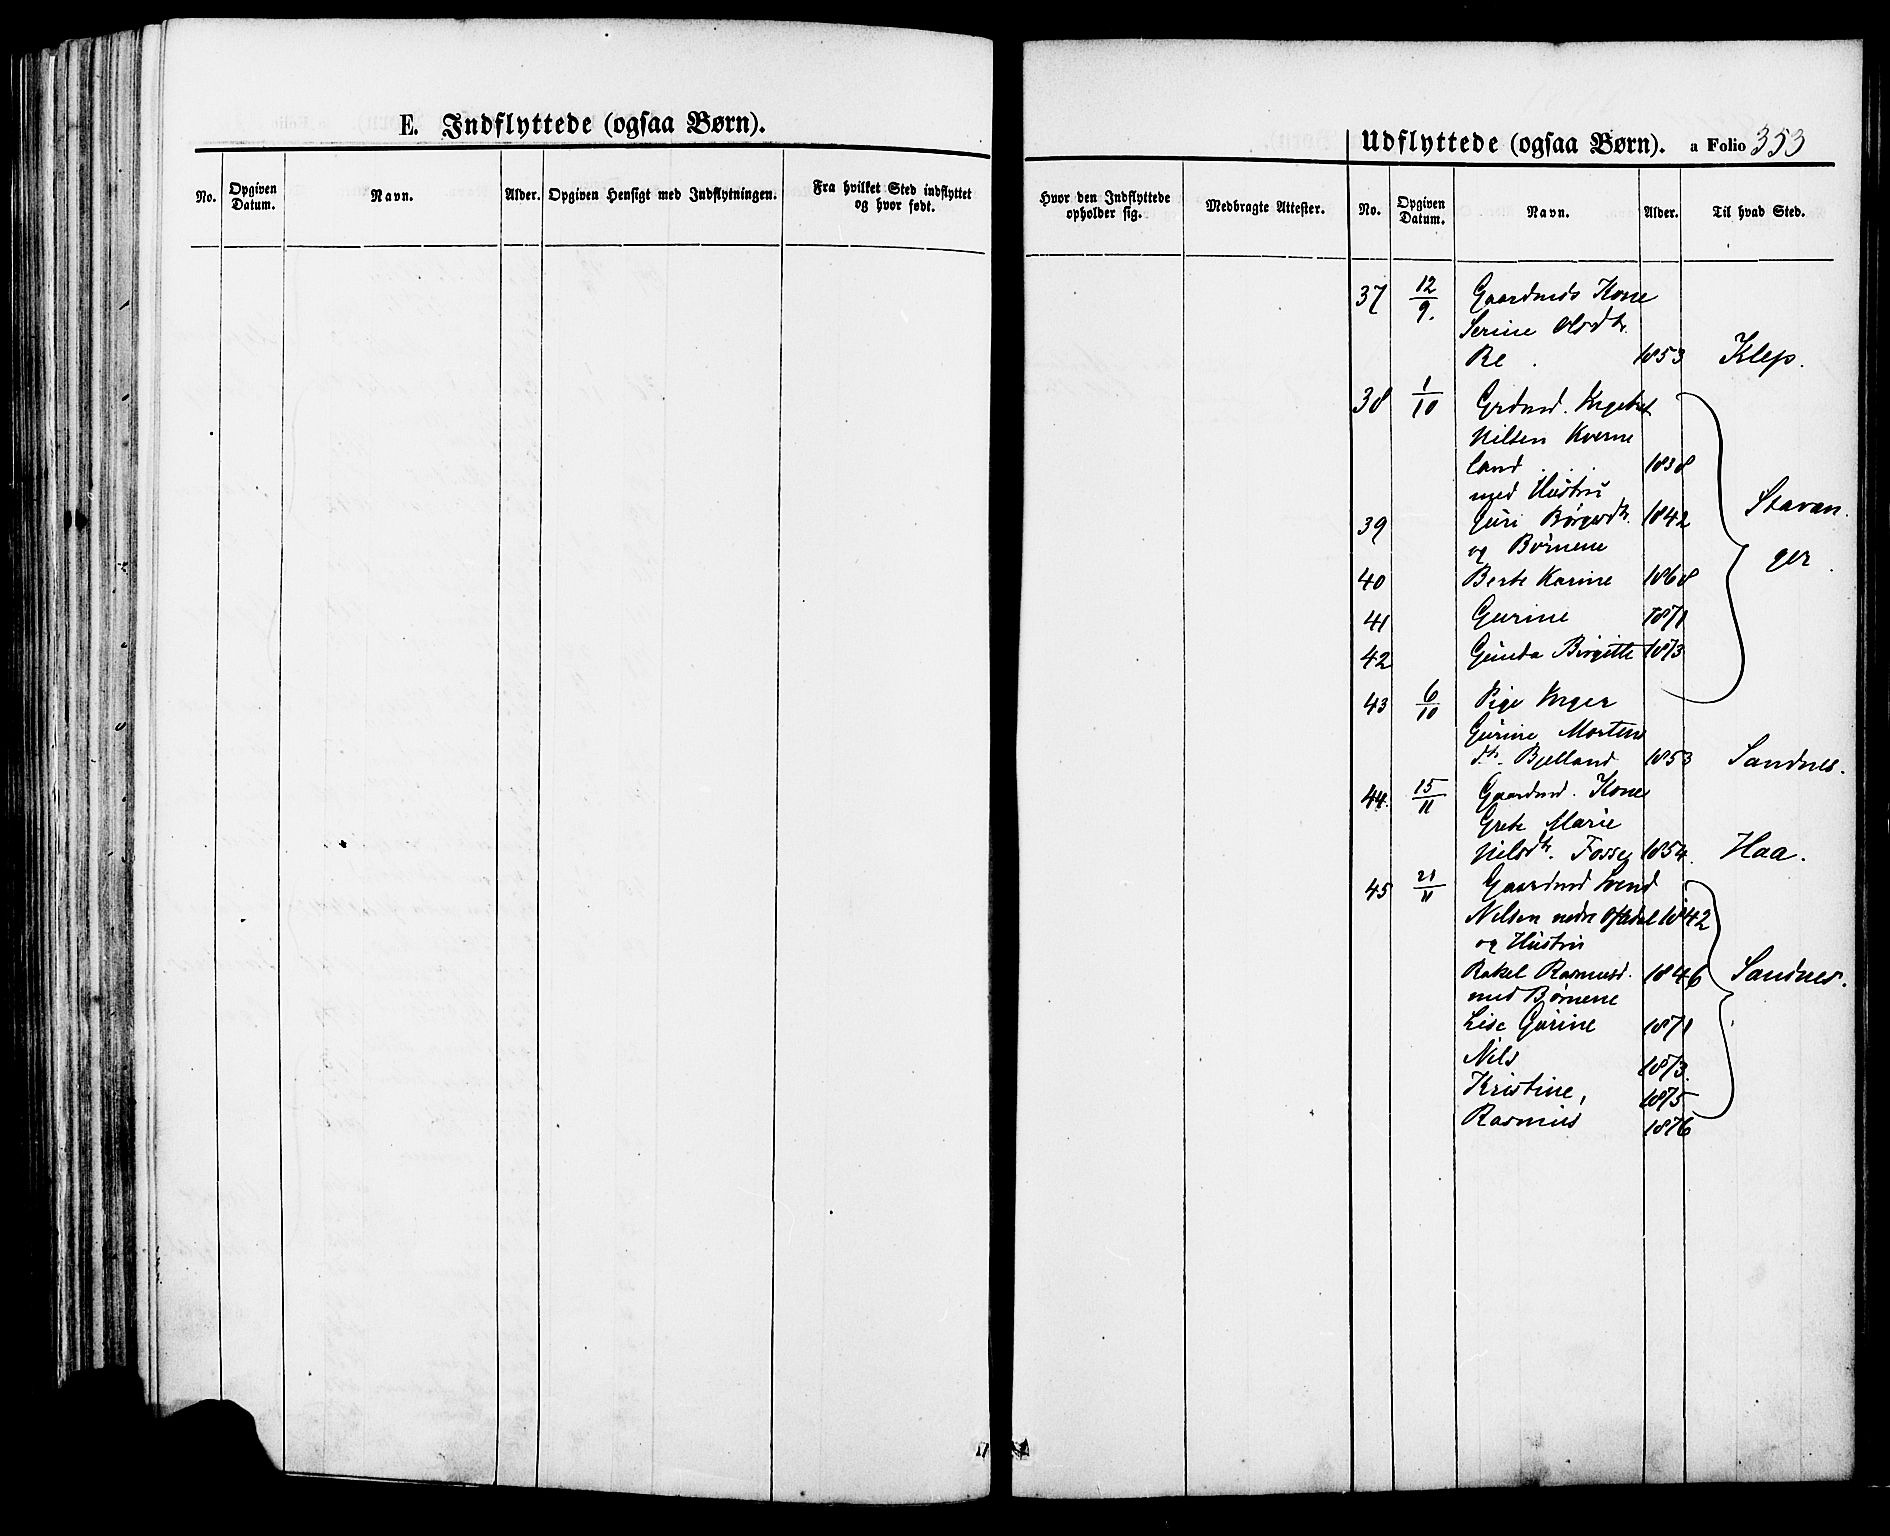 E. Indflyttede (ogsaa Børn).
No.
Opgiven Datum.
Navn.
Alder.
Opgiven Hensigt med Indflytningen.
Fra hvilket Sted indflyttet og hvor født.
Hvor den Indflyttede opholder sig.
Medbragte Attester.
Udflyttede (ogsaa Børn). a Folio 353
No.
Opgiven Datum.
Navn.
Alder.
Til hvad Sted.
37 12/9. Gaardmds Kone
Serine Olsdtr.
Re 1853 Klep.
38 1/10 Grdmd. Ingebret
Nilsen Kverne
land 1838
med Hustru
39 Guri Børgesdtr. 1842
og Børnene
Stavan
ger
40 Berte Karine 1868
41 Gurine 1871
42 Gunda Birgitte 1873
43 6/10 Pige Inger
Gurine Mortens
dtr. Bjelland 1853 Sandnes.
44. 15/11 Gaardmd. Kone
Grete Marie
Nilsdtr. Fosse 1854. Haa.
45 21/11 Gaardmd Svend
Nilsen nedre 1842
og Hustru
Rakel Rasmusd. 1846 Sandnes.
med Børnene
Lise Gurine 1871
Nils 1873.
Kristine, 1875
Rasmus 1876